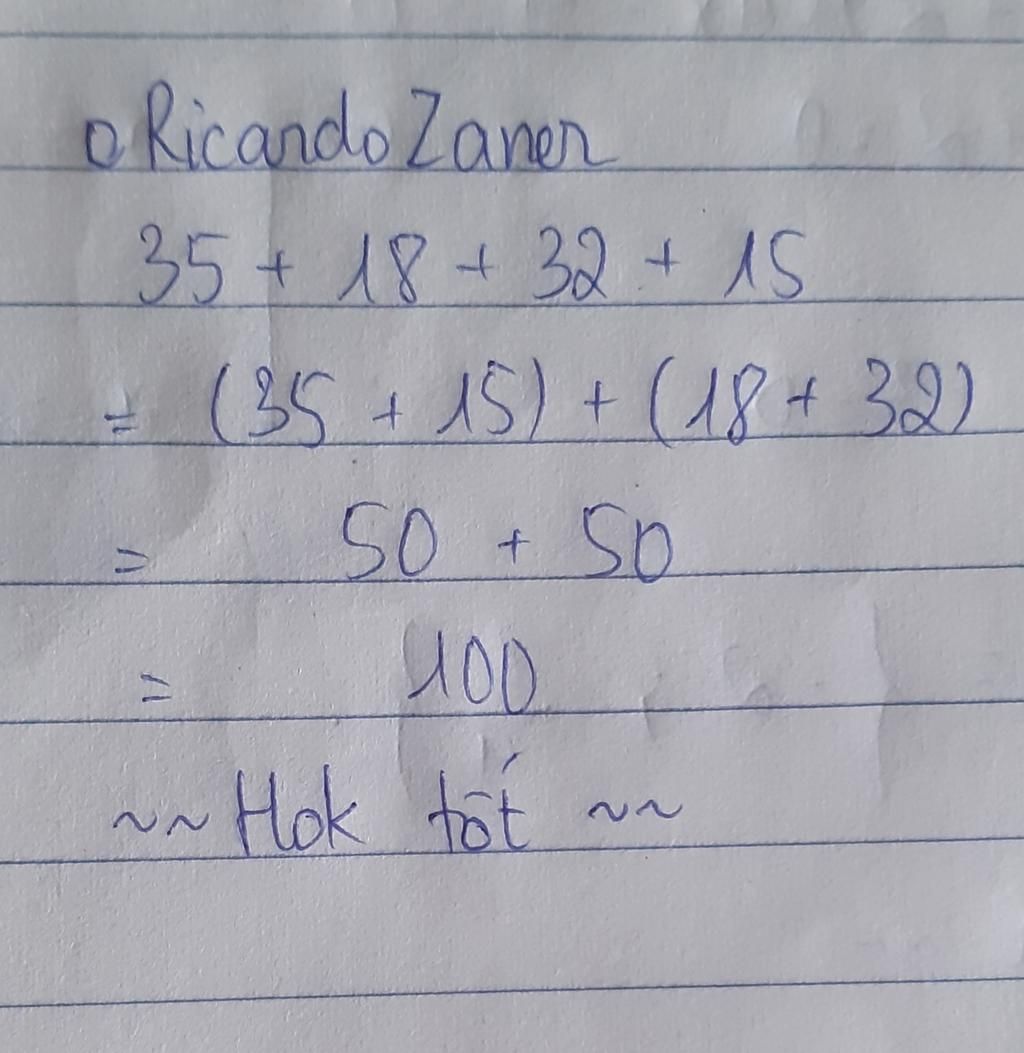 o Ricardo Zaner
35 + 18 + 32 + 15
= (35 + 15) + (18 + 32)
= 50 + 50
= 100
~~ Hok tốt ~~